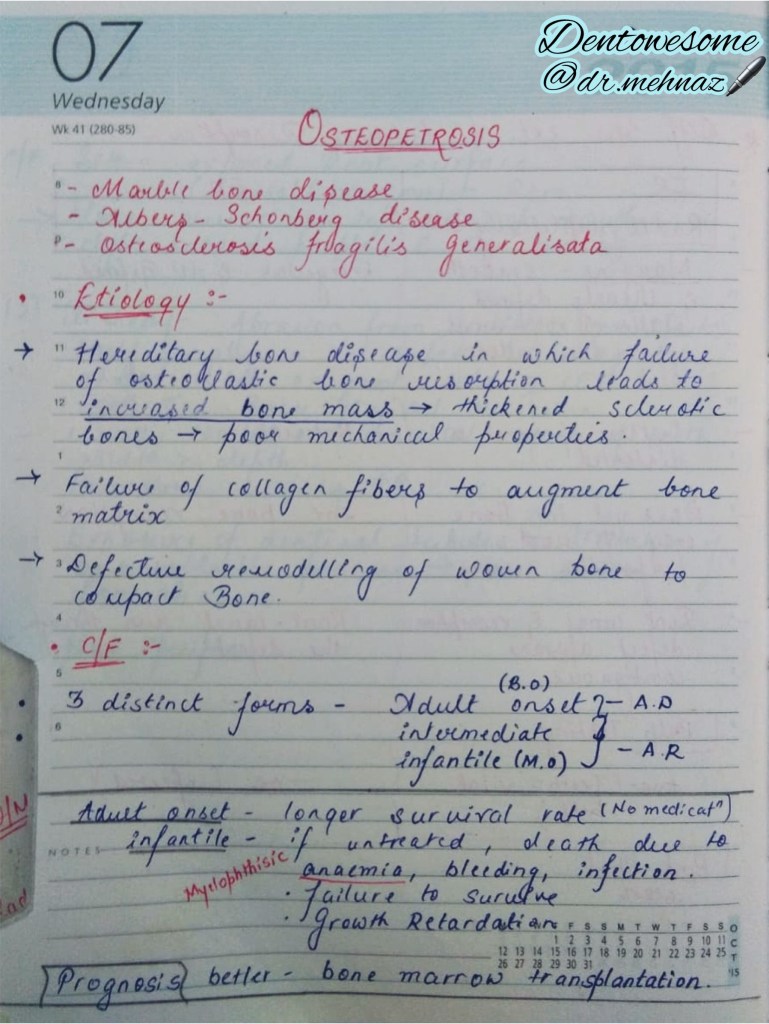 Dentowesome
@dr.mehnaz
07
Wednesday
Wk 41 (280-85)
OSTEOPETROSIS
8 - Marble bone disease
- Albers - Schonberg disease
9 - Osteosclerosis fragilis generalisata
• 10 Etiology :-
→ 11 Hereditary bone disease in which failure
of osteoclastic bone resorption leads to
12 increased bone mass → thickened sclerotic
bones → poor mechanical properties.
1
→ Failure of collagen fibers to augment bone
2 matrix
→ 3 Defective remodelling of woven bone to
compact Bone.
4
• C/F :-
5
(B.O)
3 distinct forms - Adult onset } - A.D
6 intermediate
infantile (M.O) } - A.R
Adult onset - longer survival rate (No medicatⁿ)
NOTES infantile - if untreated, death due to
Myelophthisic anaemia, bleeding, infection.
• failure to survive
• Growth Retardation
F S S M T W T F S S O
1 2 3 4 5 6 7 8 9 10 11 C
12 13 14 15 16 17 18 19 20 21 22 23 24 25 T
26 27 28 29 30 31 '15
Prognosis better - bone marrow transplantation.